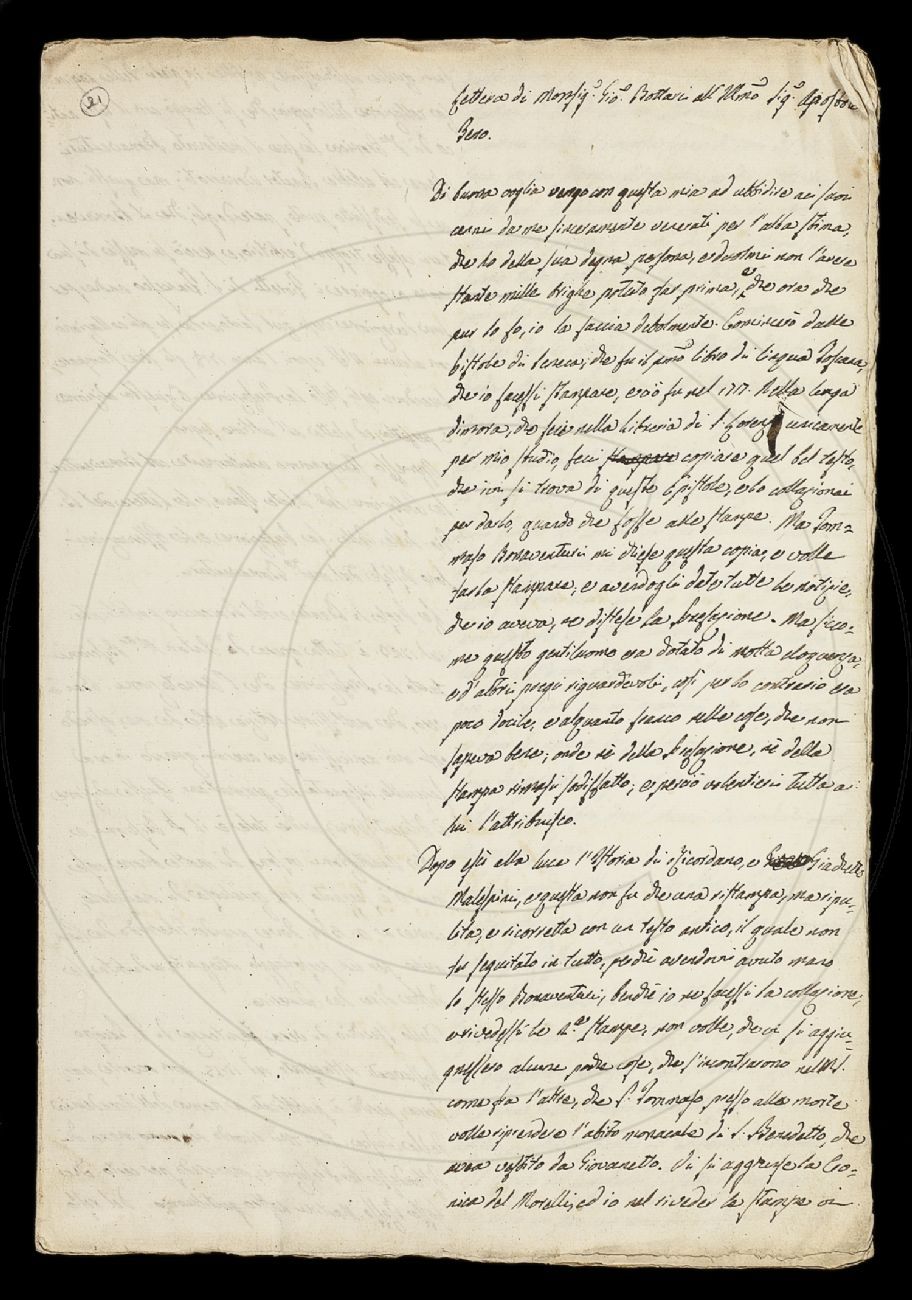 21
Lettera di Monsig.r Gio. Bottari all'Illmo Sig.r Apostolo
Zeno.
Di buona voglia vengo con questa mia ad ubbidire ai suoi
cenni da me sinceramente venerati per l'alta stima,
che ho della sua degna persona, e duolmi non l'avere
stante mille brighe potuto far prima, e che ora che
pur lo fo, io la faccia debolmente. Comincerò dalle
Pistole di Seneca, che fu il primo libro di lingua Toscana,
che io facessi stampare, e ciò fu nel 1717. Nella lunga
dimora, che feci nella Libreria di S. Lorenzo unicamente
per mio studio, feci stampare copiare quel bel testo,
che ivi si trova di queste Epistole, e lo collazionai
per darlo, quando che fosse alle stampe. Ma Tom=
maso Bonaventuri mi chiese questa copia, e volle
farla stampare, e avendogli date tutte le notizie,
che io aveva, ne distese la Prefazione. Ma sicco=
me questo gentiluomo era dotato di molta eloquenza,
e d'altri pregi riguardevoli, così per lo contrario era
poco docile, e alquanto franco nelle cose, che non
sapeva bene; onde nè della Prefazione, nè della
stampa rimasi sodisfatto; e perciò volentieri tutta a
lui l'attribuisco.
Dopo escì alla luce l'Istoria di Ricordano, e Giachetto
Malespini, e questa non fu che una ristampa, ma ripu=
lita, e ricorretta con un testo antico, il quale non
fu seguitato in tutto, perchè avendovi avuto mano
lo stesso Bonaventuri, benchè io ne facessi la collazione,
e rivedessi le stampe, non volle, che vi si aggiu=
gnessero alcune poche cose, che s'incontrarono nel MS.
come fra l'altre, che S. Tommaso presso alla morte
volle riprendere l'abito monacale di S. Benedetto, che
avea vestito da Giovanetto. Vi si aggiunse la Cro=
nica del Morelli, ed io nel riveder le stampe vi